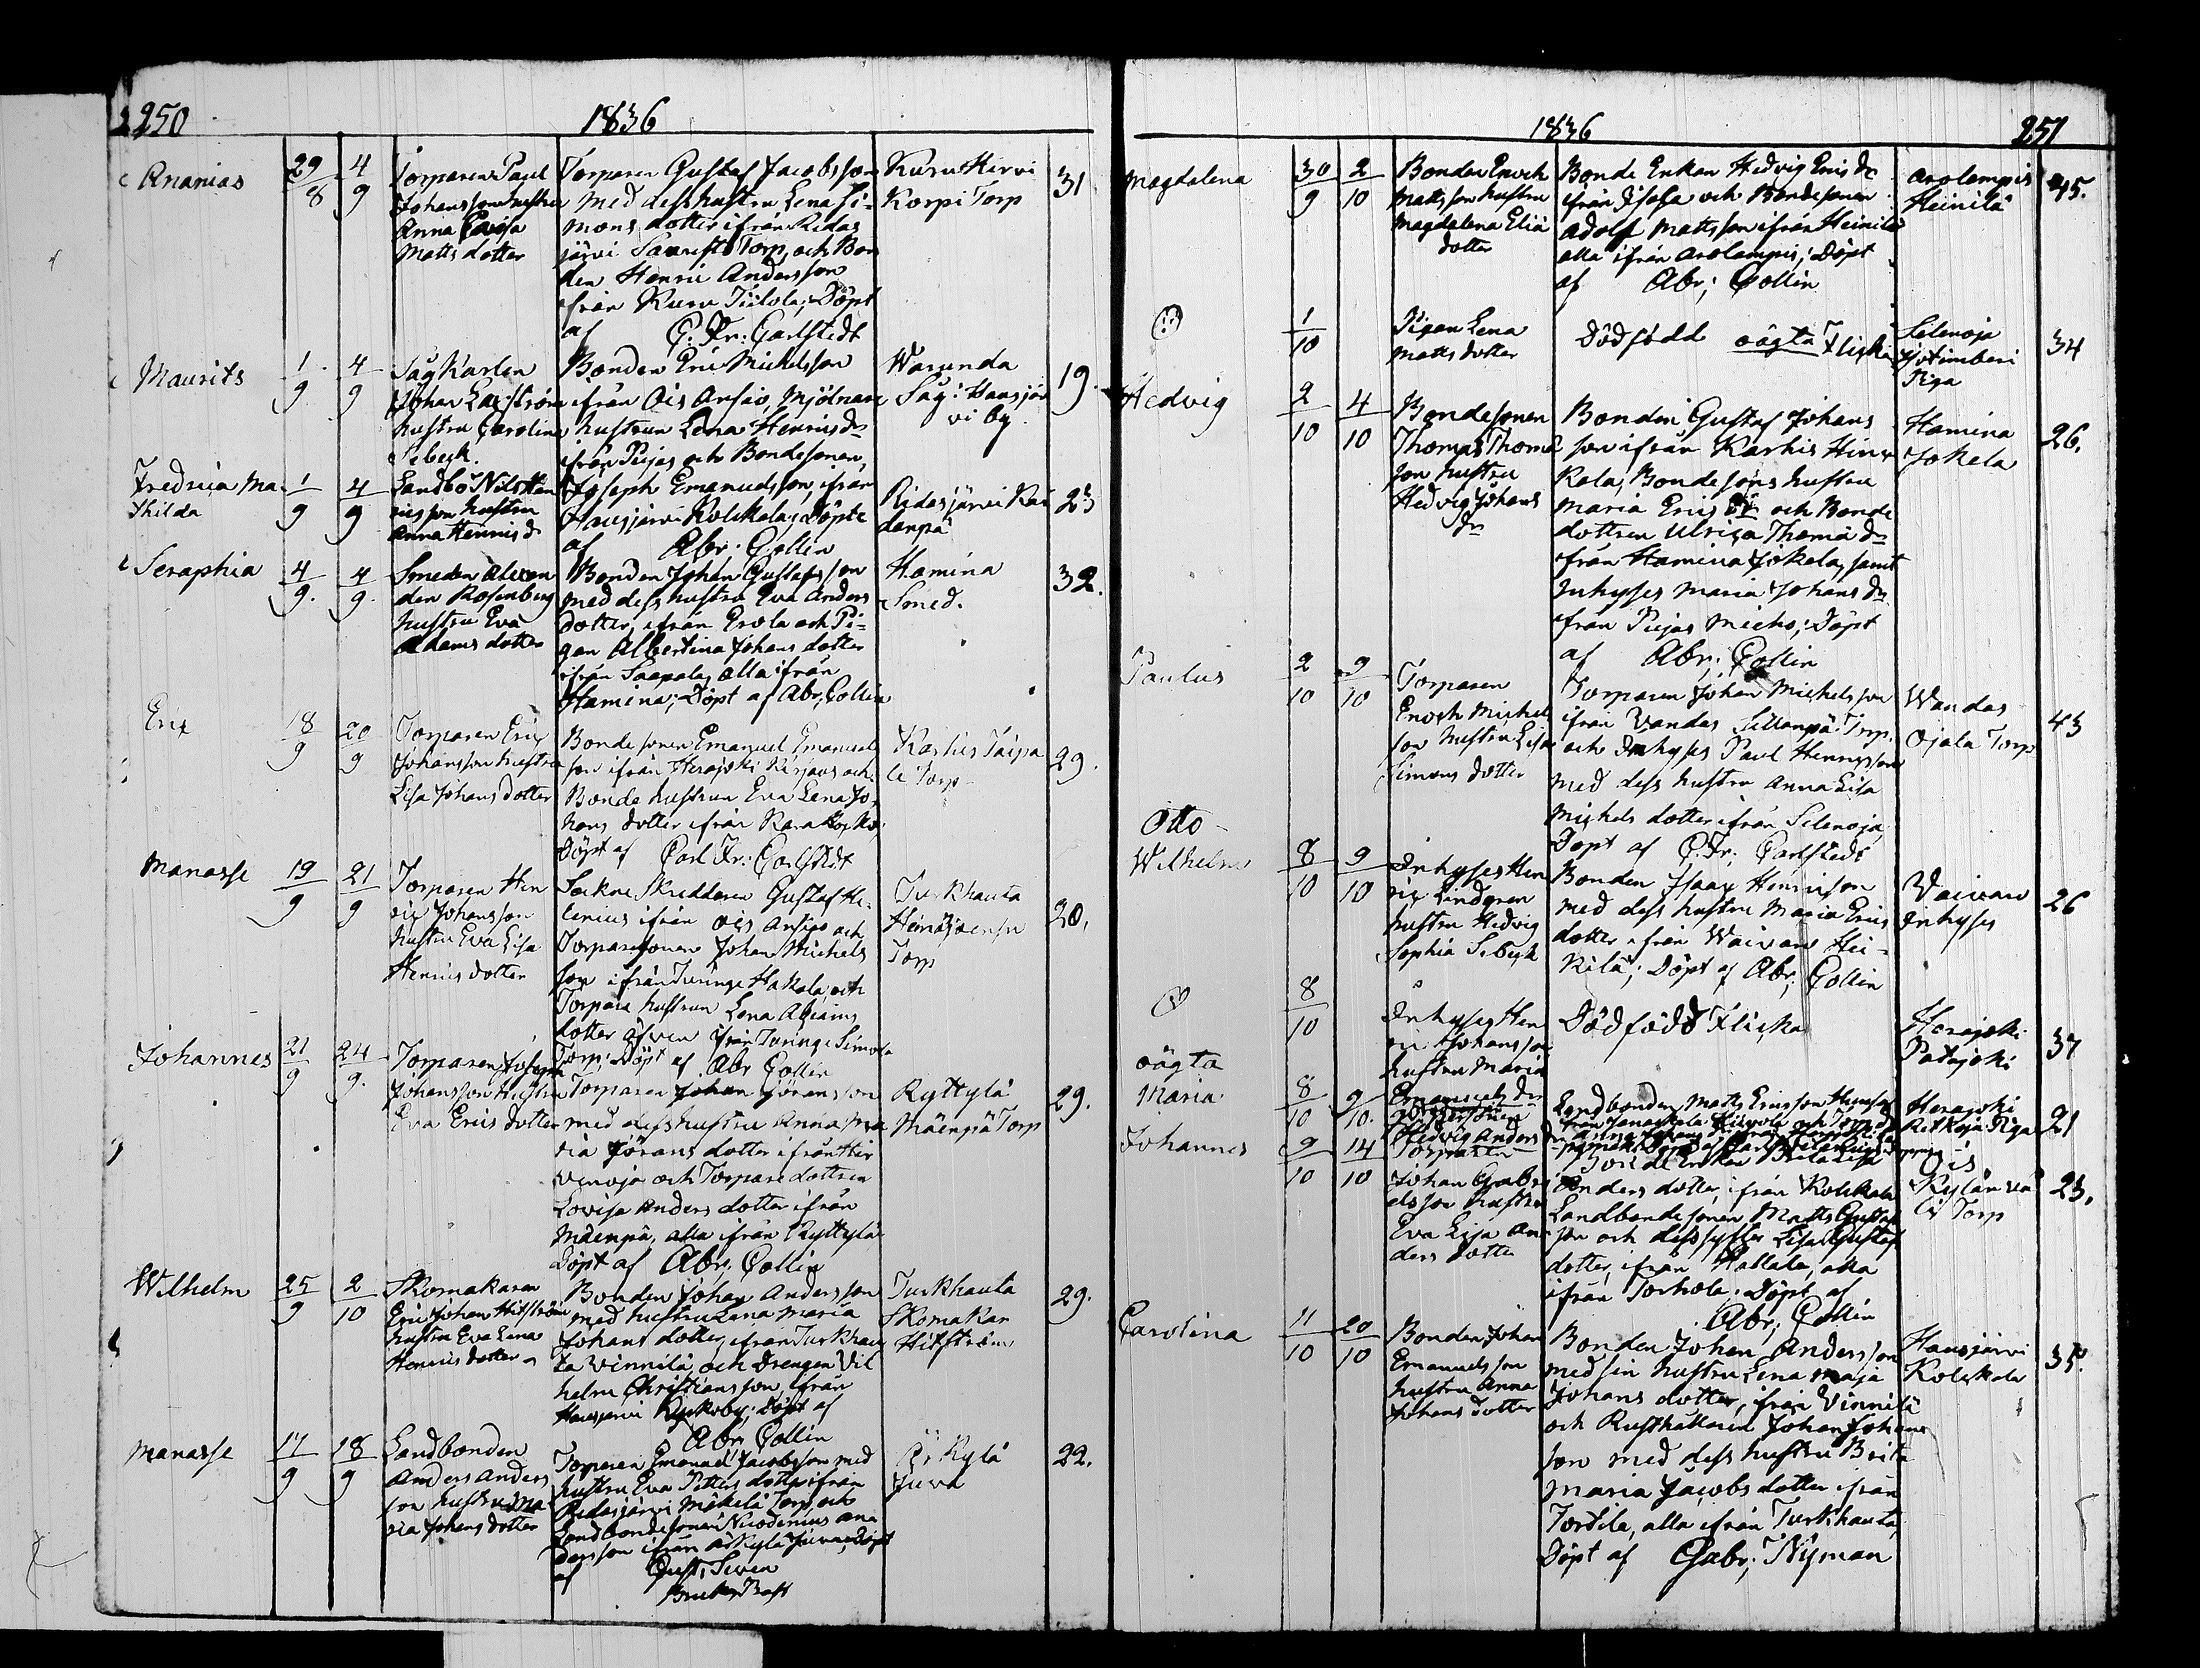 250 1836
Ananias 29/8 4/9 Torparen Paul Torparen Gustaf Jacobsson Kuru Hirvi 31
Johansson hustru med dess hustru Lena Si= Korpi Torp
Anna Lovisa mons dotter ifrån Ridas
Matts dotter järvi Torp, och Bon
den Henric Andersson
ifrån Kuru Tiilola; Döpt
af C. Fr: Carlstedt
Maurits 1/9 4/9 Såg Karlen Bonden Eric Michelsson Warunda 19.
Johan hustru ifrån Ois Ansio, Mjölnare Såg: Hausjär
hustru Carolina hustrun Lena Henricsdr vi by
Sebeck. ifrån Pujas och Bondesonen,
Fredrica Ma 1/9 4/9 Landbo Nils Hen Joseph Emanuelsson, ifrån Ridasjärvi Kar 23
thilda ricsson hustru Hausjärvi Kolckala; Döpte danpä
Anna Henricsdr af Abr: Collin
Seraphia 4/9. 4/9. Smeden Alexan Bonden Johan Gustafsson Hamina 32.
der Rosenberg med dess hustru Eva Anders Smed.
hustru Eva dotter, ifrån Erola och Pi=
Adams dotter gan Albertina Johans dotter
ifrån Saapala, alla ifrån
Hamina; Döpt af Abr; Collin
Eric 18/9 20/9 Torparen Eric Bonde sonen Emanuel Emanuel Karhis Taipa 29.
Johansson hustru son ifrån Herajoki och le Torp
Lisa Johans dotter Bonde hustrun Eva Lena Jo
hans dotter ifrån
Döpt af Carl Fr: Carlstedt
Manasse 19/9 21/9 Torparen Hen Sockne Skreddaren Gustaf He= Turkhauta 20.
ric Johansson lenius ifrån Ois Ansio och
hustru Eva Lisa Torparesonen Johan Michels Torp
Henrics dotter son ifrån Turinge Hakala, och
Torpare hustrun Lena
dotter äfven ifrån Turinge Simola
Johannes 21/9 24/9. Torparen Joseph Torp; Döpt af Abr Collin
Johansson hustru Torparen Johan Jöransson Ryttylä 29.
Eva Erics dotter med dess hustru Anna Ma Mäenpä Torp
ria Jörans dotter ifrån Hir
vinoja och Torpare dottren
Lovisa Anders dotter ifrån
Mäenpä, alla ifrån Ryttylä
Döpt af Abr; Collin
Wilhelm 25/9 2/10 Skomakaren Bonden Johan Andersson Turkhauta 29.
Eric Johan Hitström med hustru Lena Maria Skomakar
hustru Eva Lena Johans dotter, ifrån Turkhau Hitström
Henrics dotter ta Vinnilä och Drengen Vil
helm Christiansson, ifrån
Hausjärvi Kyrkoby; Döpt af
Abr; Collin
Manasse 17/9 18/9 Landbonden Torparen Emanuel Jacobsson med Kylä 22.
Anders Anders hustru Eva Petters dotter ifrån Juva
son hustru Ma Ridasjärvi Mäkelä Torp, och
ria Johans dotter Landbondesonen Nicodemus An
dersson ifrån Kylä Juva; Döpt
af Gust; Siren
1836 251
Magdalena 30/9 2/10 Bonden Enoch Bonde Enkan Hedvig Ericsdr Arolampis 45.
Mattsson hustru ifrån och Bondesonen Heinilä
Magdalena Eliä Adolf Mattsson ifrån Heinilä
dotter alla ifrån Arolampis; Döpt
af Abr; Collin
1/10 Pigan Lena Dödfödd oägta Flicka Selenoja 34
Matts dotter
Piga
Hedvig 2/10 4/10 Bondesonen Bonden Gustaf Johans Hamina 26.
Thomas Thomä son ifrån Karhis Hinx Jokela
son hustru kala, Bondesons hustru
Hedvig Johans Maria Erics dr och Bonde
dr dottren Ulrica Thomä dr
ifrån Hamina Jokela, samt
Inhyses Maria Johans dr
ifrån Pujas Micko; Döpt
af Abr; Collin
Paulus 2/10 9/10 Torparen Torparen Johan Michelsson Wandas 43
Enoch Michel ifrån Vandas Sillanpä Torp. Ojala Torp
son hustru Lisa och Inhyses Paul Henricsson
Simons dotter med dess hustru Anna Lisa
Michels dotter ifrån Selenoja
Otto Döpt af C. Fr; Carlstedt
Wilhelm 8/10 9/10 Inhyses Hen Bonden Isaac Henricson Waivan 26
ric Lindgren med dess hustru Maria Erics Inhyses
hustru Hedvig dotter ifrån Waivan Hei=
Sophia Sebeck kilä; Döpt af Abr; Collin
8/10 Inhyses Hen Dödfödd Flicka Herajoki 37
ric Johansson Patajoki
oägta hustru Maria
Maria 8/10 9/10. Emanuels dr Landbonden Matts Ericsson Herajoki 21
Hedvig Anders Piga
Johannes 9/10 14/10 Torparen Bonde Enkan Brita Lisa Ois
Johan Gabri Anders dotter, ifrån Kolckala 23.
elsson hustru Landbondesonen Matts Gustaf Torp
Eva Lisa An son och dess syster Lisa Gustaf
ders dotter dotter, ifrån Hallala, alla
ifrån Torhola. Döpt af
Abr; Collin
Carolina 11/10 20/10 Bonden Johan Bonden Johan Andersson Hausjärvi 35.
Emanuelsson med sin hustru Lena Maja Kolckala
hustru Anna Johans dotter, ifrån Vinnilä
Johans dotter och Rusthållaren Johan Johans
son med dess hustru Brita
Maria Jacobs dotter ifrån
Tordila, alla ifrån Turkhauta,
Döpt af Gabr; Nyman